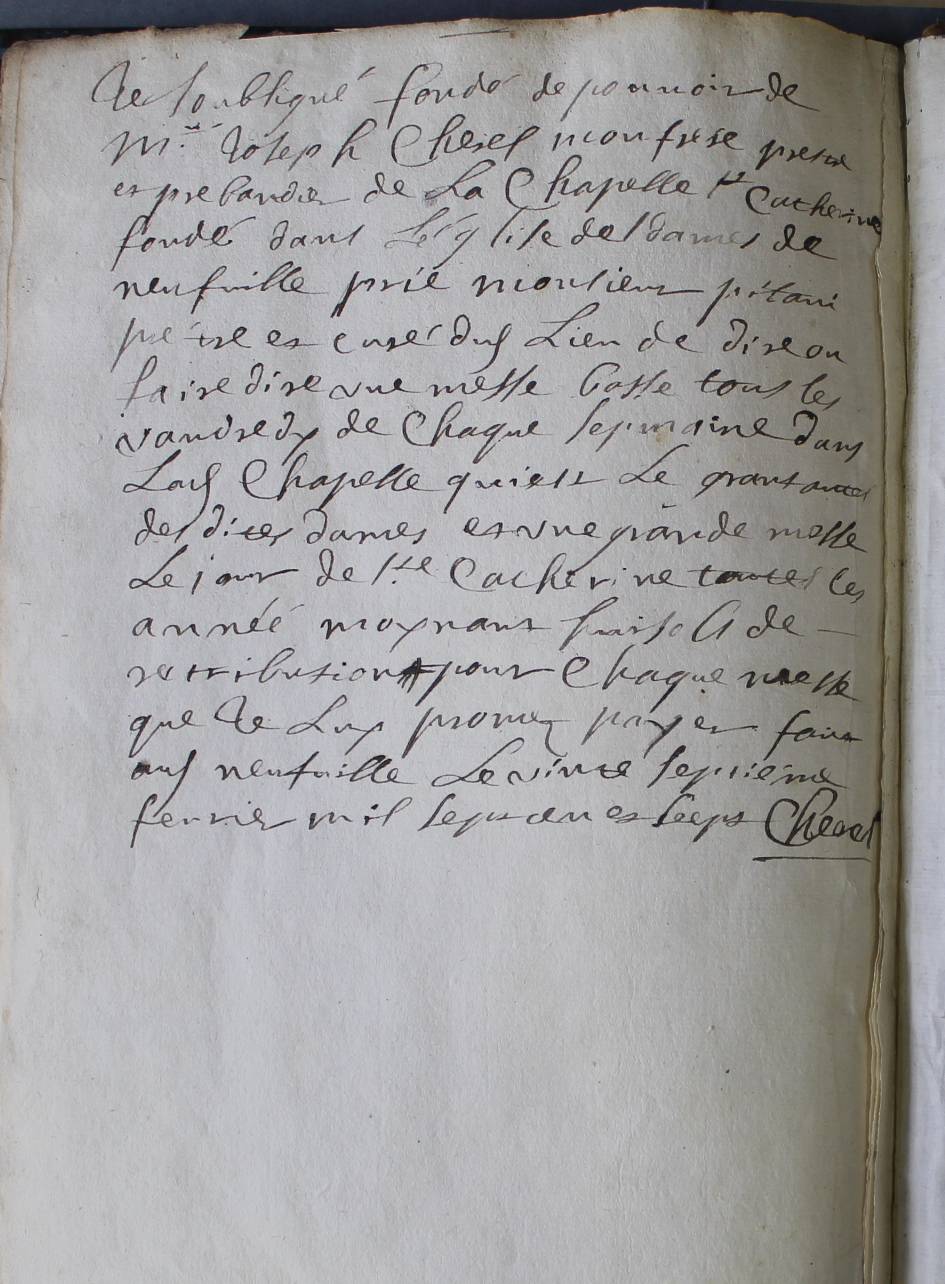 Je soubligné fondé depouuoir de
M.re Joseph Cherel mon frere prestre
et prebandier de La Chapelle Ste Catherine
fondé dans L'église des dames de
neufuille prié monsieur pitaui
prétre et curé duḍ Lieu de dire ou
faire dire vne messe basse tous les
vandredy de Chaque sepmaine dans
Ladḍ Chapelle qui est Le grant autel
des dites dames et vne grande messe
Le jour de Ste Catherine toutes les
année moynant huit sols de
retribution pour Chaque messe
que Je Luy promez payer fait
aud neufuille Le vinte septiéme
feurier mil sept cen et sept Cherel